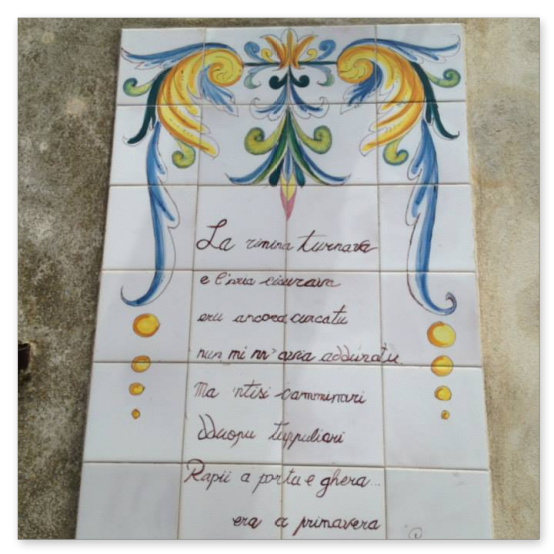 La rinina turnava
e l'aria ciaurava
eru ancora curcatu
nun mi nn' avia addunatu
Ma 'ntisi camminari
dduopu tuppuliari
Rapii a porta e ghera...
era a primavera